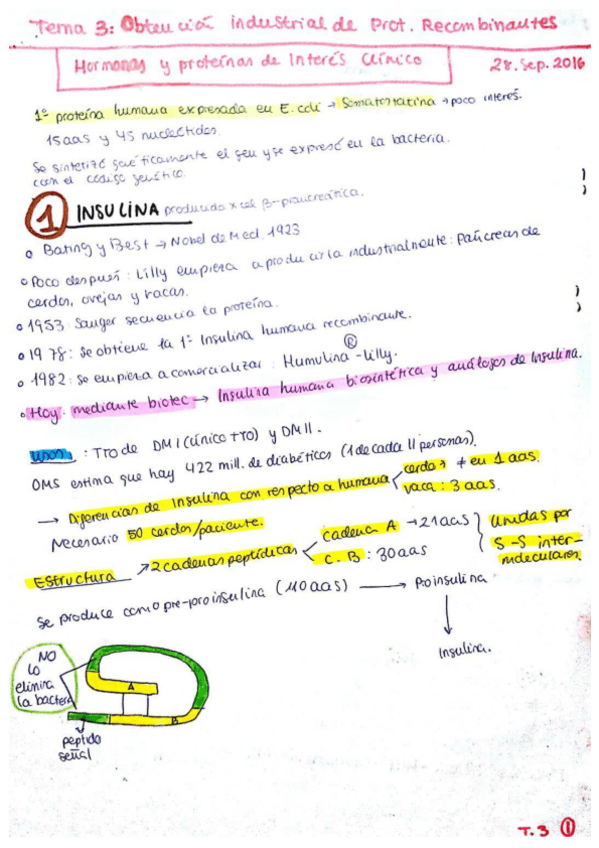 Tema 3: Obtención industrial de Prot. Recombinantes
Hormonas y proteínas de Interés Clínico
28. Sep. 2016
1ª proteína humana expresada en E. coli → Somatostatina → poco interés.
15aas y 45 nucleótidos.
Se sintetizó genéticamente el gen y se expresó en la bacteria.
con el código genético.
1 INSULINA producida x cel β-pancreática.
Bating y Best → Nobel de Med. 1923
Poco después: Lilly empieza a producirla industrialmente: Páncreas de
cerdos, ovejas y vacas.
1953 Sanger secuencia la proteína.
1978: Se obtiene la 1ª Insulina humana recombinante.
1982: se empieza a comercializar: Humulina ® - Lilly.
Hoy: mediante biotec → Insulina humana biosintética y análogos de Insulina.
usos: Tto de DMI (único tto) y DMII.
OMS estima que hay 422 mill. de diabéticos (1 de cada 11 personas).
→ Diferencias de Insulina con respecto a humana
cerdo → ≠ en 1 aas.
vaca: 3 aas.
Necesario 50 cerdos/paciente.
Estructura → 2 cadenas peptídicas
cadena A → 21aas
C. B: 30aas
unidas por
S-S inter-
moleculares.
Se produce como pre-proinsulina (110aas) → Proinsulina
↓
Insulina.
NO
lo
elimina
la bacteria
A
B
péptido
señal
T.3 1